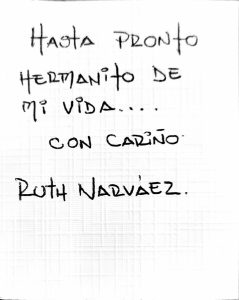 HASTA PRONTO
HERMANITO DE
MI VIDA....
CON CARIÑO.
RUTH NARVÁEZ.